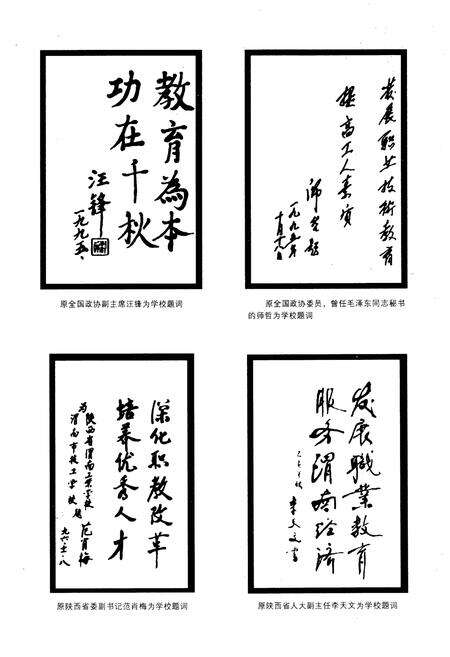 教育為本
功在千秋
汪锋
一九九五、
原全国政协副主席汪锋为学校题词
发展职业技術教育
提高工人素质
师哲题
一九九五年
十月十八日
原全国政协委员，曾任毛泽东同志秘书
的师哲为学校题词
深化职教改革
培养优秀人才
为陕西省渭南工业学校
渭南市技工学校题
范肖梅
九六·十·八
原陕西省委副书记范肖梅为学校题词
发展職業教育
服务渭南经济
李天文书
原陕西省人大副主任李天文为学校题词